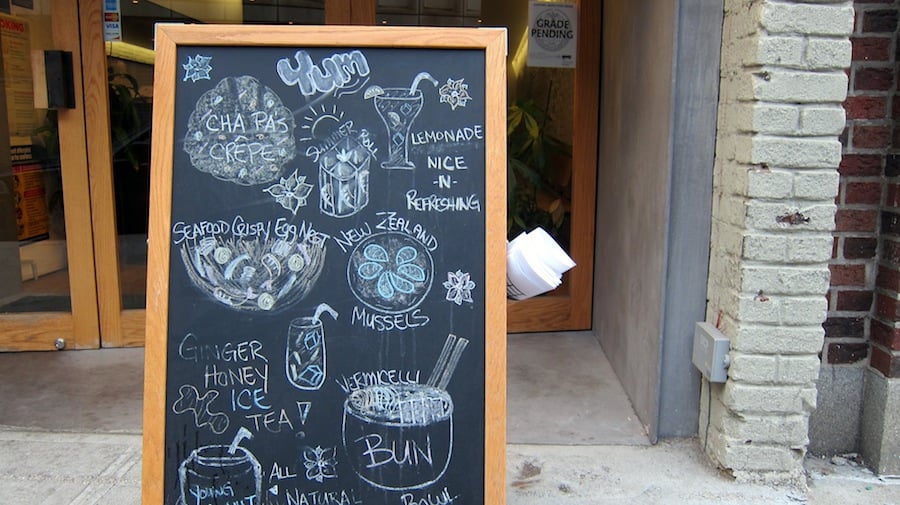 Yum
CHA PAS
CRÊPE
SUMMER
ROLL
LEMONADE
NICE
-N-
REFRESHING
SEAFOOD CRISPY EGG NEST
NEW ZEALAND
MUSSELS
GINGER
HONEY
ICE
TEA!
VERMICELLI
BUN
BOWL
YOUNG
ALL
NATURAL
GRADE
PENDING
VISA